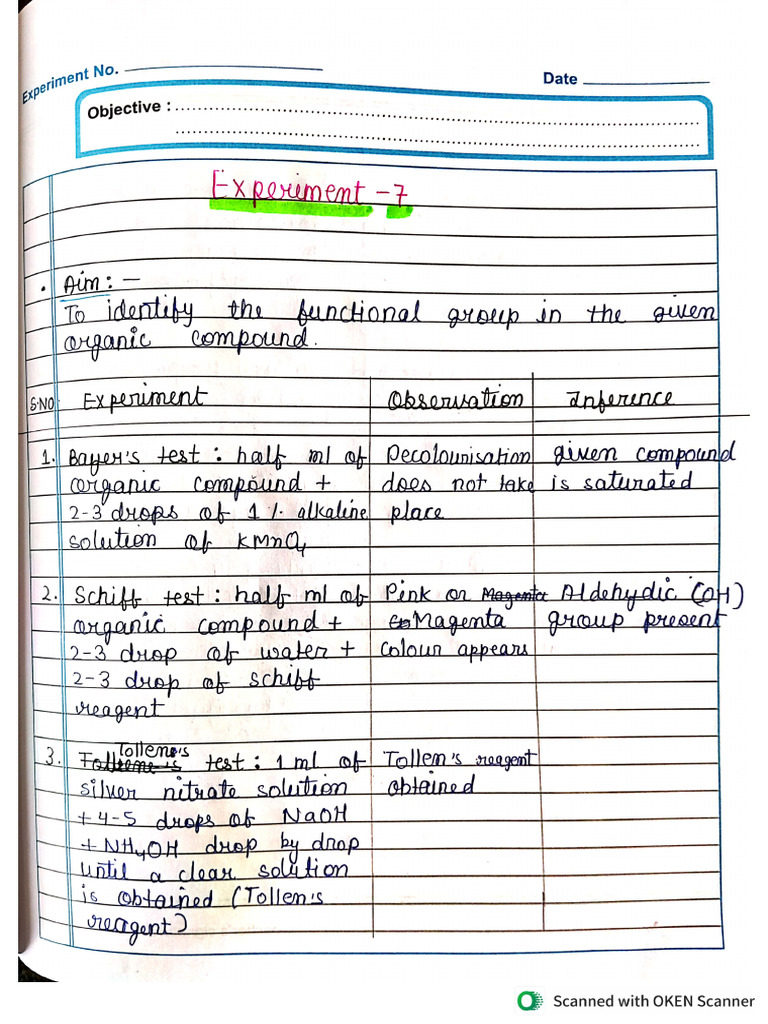 Experiment No.
Date
Objective :
Experiment - 7
Aim : -
To identify the functional group in the given
organic compound.
S.NO. Experiment Observation Inference
1. Bayer's test : half ml of Decolourisation given compound
organic compound + does not take is saturated
2-3 drops of 1% alkaline place
solution of KMnO4
2. Schiff test : half ml of Pink or Magenta Aldehydic (OH)
organic compound + Magenta group present
2-3 drop of water + colour appears
2-3 drop of schiff
reagent
Tollene's
3. test : 1 ml of Tollen's reagent
silver nitrate solution obtained
+ 4-5 drops of NaOH
+ NH4OH drop by drop
until a clear solution
is obtained (Tollen's
reagent)
Scanned with OKEN Scanner